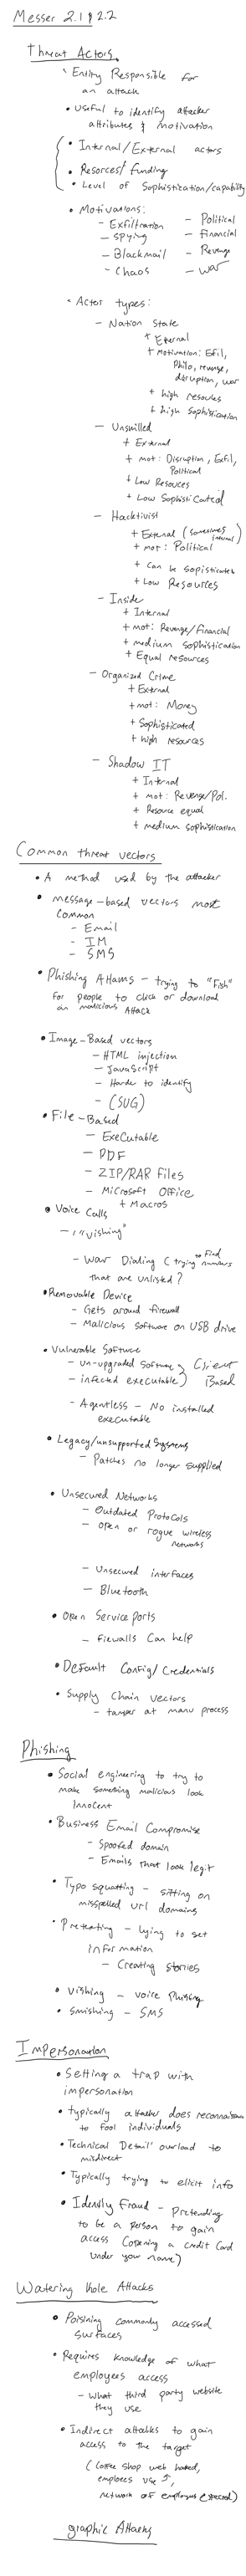 Messer 2.1 & 2.2
Threat Actors
• Entity Responsible for
an attack
• Useful to identify attacker
attributes & motivation
• Internal/External actors
• Resorces/funding
• Level of Sophistication/capability
• Motivations:
- Exfiltration - Political
- Spying - Financial
- Blackmail - Revenge
- Chaos - War
• Actor types:
- Nation State
+ External
+ Motivation: Exfil,
Philo, revenge,
disruption, war
+ high resoures
+ high sophistication
- Unskilled
+ External
+ mot: Disruption, Exfil,
Political
+ Low Resouces
+ Low Sophisticated
- Hacktivist
+ External (Sometimes
internal)
+ mot: Political
+ Can be sopisticated
+ Low Resources
- Inside
+ Internal
+ mot: Revenge/Financial
+ medium sophistication
+ Equal resources
- Organized Crime
+ External
+ mot: Money
+ Sophisticated
+ high resources
- Shadow IT
+ Internal
+ mot: Revenge/Pol.
+ Resource equal
+ medium sophistication
Common threat vectors
• A method used by the attacker
• message-based vectors most
Common
- Email
- IM
- SMS
• Phishing Attacks - trying to "Fish"
for people to click or download
an malicious Attack
• Image-Based vectors
- HTML injection
- JavaScript
- Harder to identify
- (SVG)
• File-Based
- Executable
- PDF
- ZIP/RAR Files
- Microsoft Office
+ Macros
• Voice Calls
- "Vishing"
- War Dialing (trying to find numbers
that are unlisted?
• Removable Device
- Gets around firewall
- Malicious Software on USB drive
• Vulnerable Software
- un-upgraded Software } Client
- infected executable } Based
- Agentless - No installed
executable
• Legacy/unsupported Systems
- Patches no longer supplied
• Unsecured Networks
- Outdated Protocols
- open or rogue wireless
networks
- Unsecured interfaces
- Bluetooth
• Open Service ports
- fiewalls Can help
• Default Config/Credentials
• Supply Chain Vectors
- tamper at manu process
Phishing
• Social engineering to try to
make something malicious look
Innocent
• Business Email Compromise
- Spoofed domain
- Emails that look legit
• Typo Squatting - sitting on
misspelled url domains
• Pretexting - lying to get
information
- Creating stories
• Vishing - voice Phishing
• Smishing - SMS
Impersonation
• Setting a trap with
impersonation
• typically attacker does
to fool individuals
• Technical Detail overload to
misdirect
• Typically trying to elicit info
• Identity Fraud - Pretending
to be a person to gain
access (opening a credit Card
under your name)
Watering Hole Attacks
• Poisining commonly accessed
surfaces
• Requires knowledge of what
employees access
- What third party website
they use
• Indirect attacks to gain
access to the target
(Coffee shop web hacked,
employees use it,
network of employees)
graphic Attacks